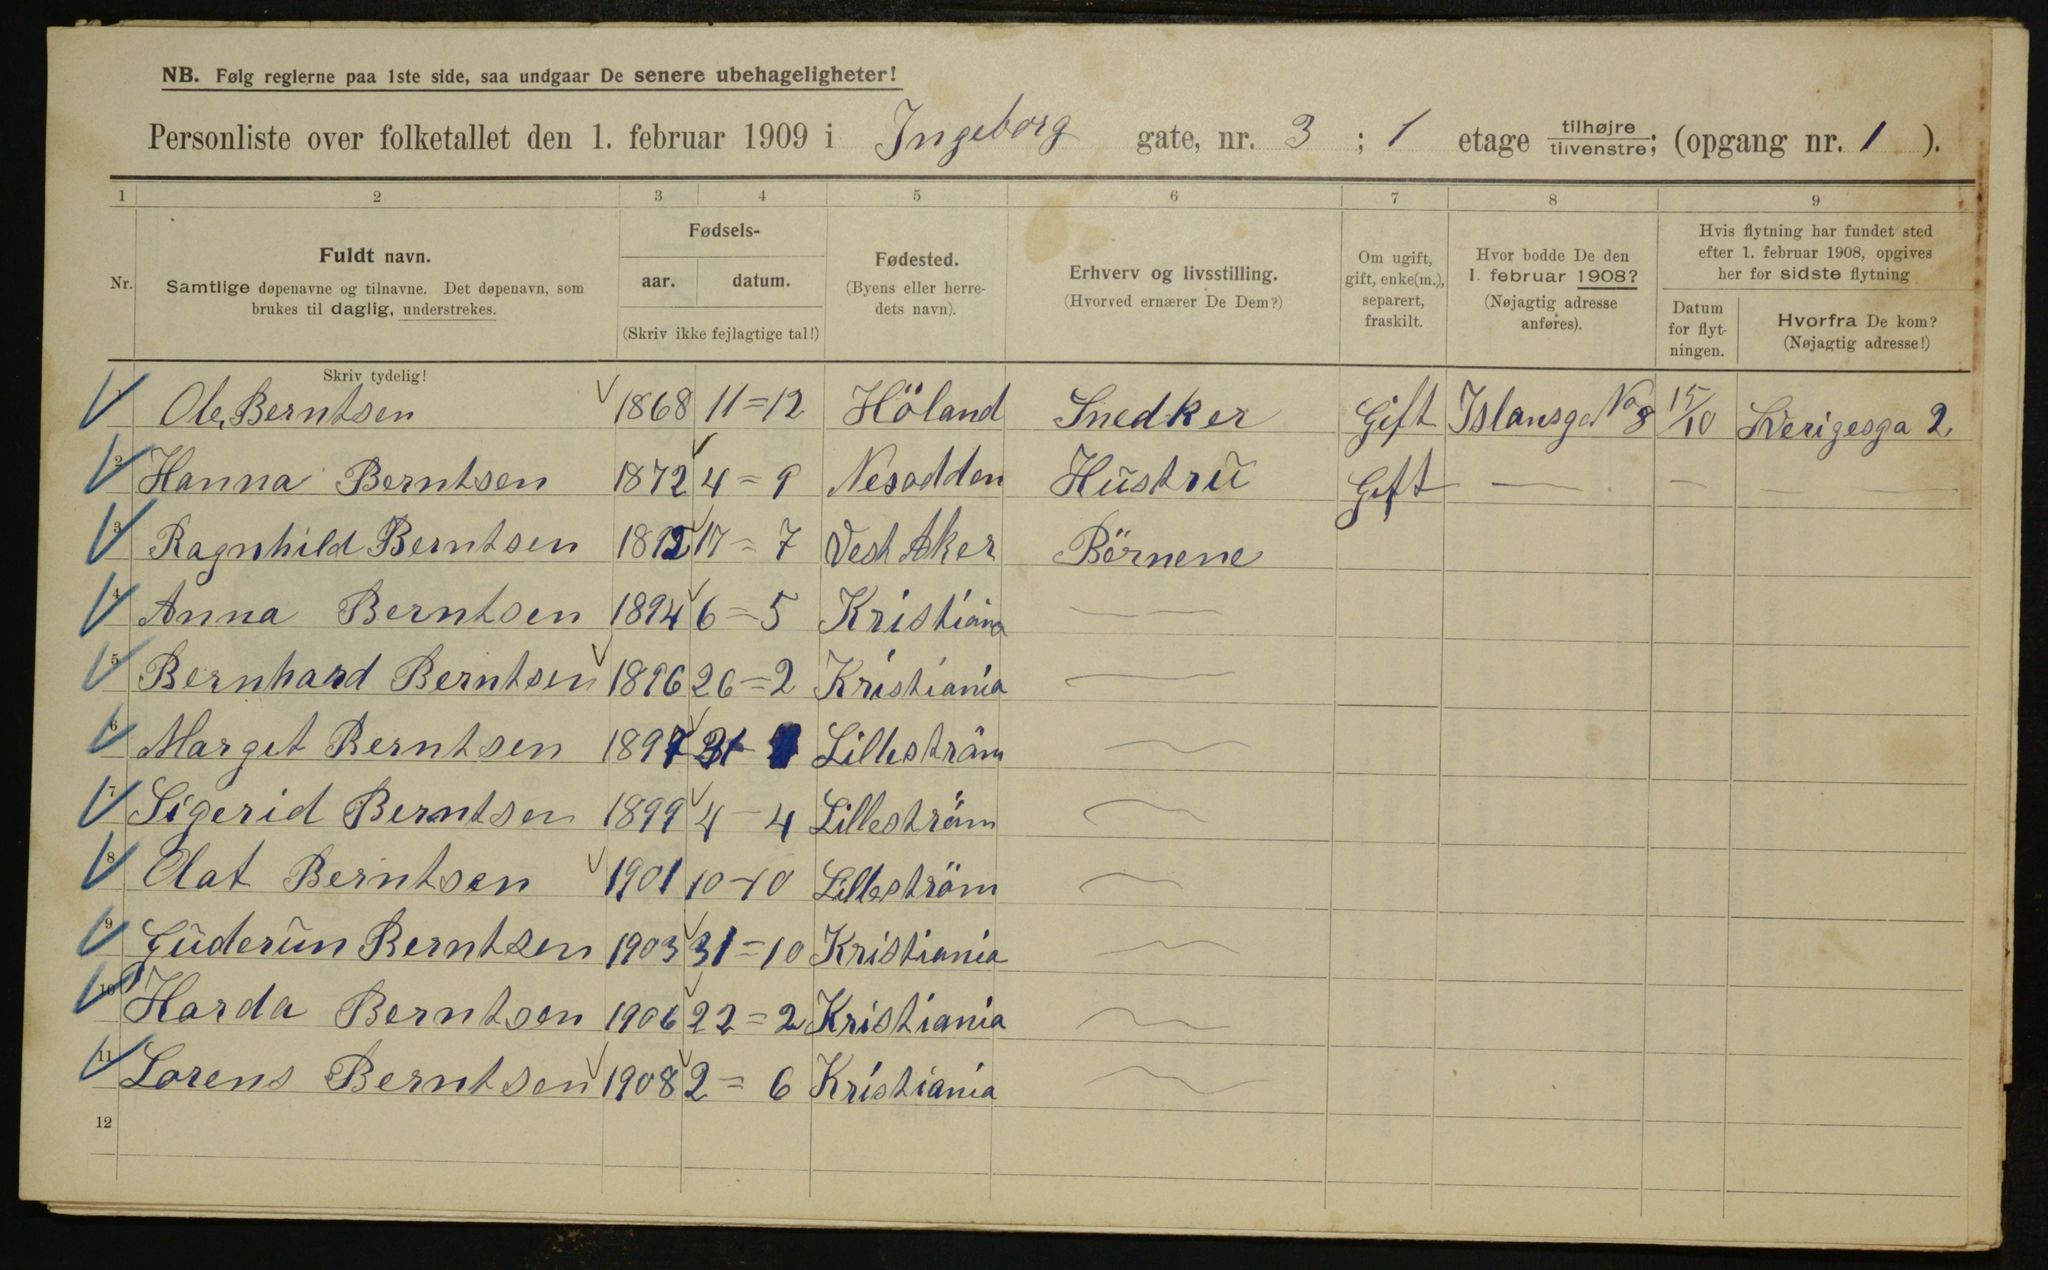 NB. Følg reglerne paa 1ste side, saa undgaar De senere ubehageligheter!
Personliste over folketallet den 1. februar 1909 i Ingeborg gate, nr. 3 ; 1 etage tilhøjre tilvenstre; (opgang nr. 1 ).
1 2 3 4 5 6 7 8 9
Nr.
Fuldt navn.
Samtlige døpenavne og tilnavne. Det døpenavn, som
brukes til daglig, understrekes.
Skriv tydelig!
Fødsels-
aar. datum.
(Skriv ikke fejlagtige tal!)
Fødested.
(Byens eller herre-
dets navn).
Erhverv og livsstilling.
(Hvorved ernærer De Dem?)
Om ugift,
gift, enke(m.),
separert,
fraskilt.
Hvor bodde De den
1. februar 1908?
(Nøjagtig adresse
anføres).
Hvis flytning har fundet sted
efter 1. februar 1908, opgives
her for sidste flytning
Datum
for flyt-
ningen.
Hvorfra De kom?
(Nøjagtig adresse!)
1 Ole Berntsen 1868 11=12 Höland Snedker Gift Islansga No 8 15/10 Sverigesga 2
2 Hanna Berntsen 1872 4=9 Nesodden Hustru Gift — — —
3 Ragnhild Berntsen 1892 17=7 Vest Aker Börnene
4 Anna Berntsen 1894 6=5 Kristiania —
5 Bernhard Berntsen 1896 26=2 Kristiania —
6 Margit Berntsen 1897 Lilleström —
7 Sigerid Berntsen 1899 4-4 Lilleström —
8 Olaf Berntsen 1901 10-10 Lilleström —
9 Guderun Berntsen 1903 31=10 Kristiania —
10 Harda Berntsen 1906 22=2 Kristiania —
11 Lorens Berntsen 1908 2=6 Kristiania —
12